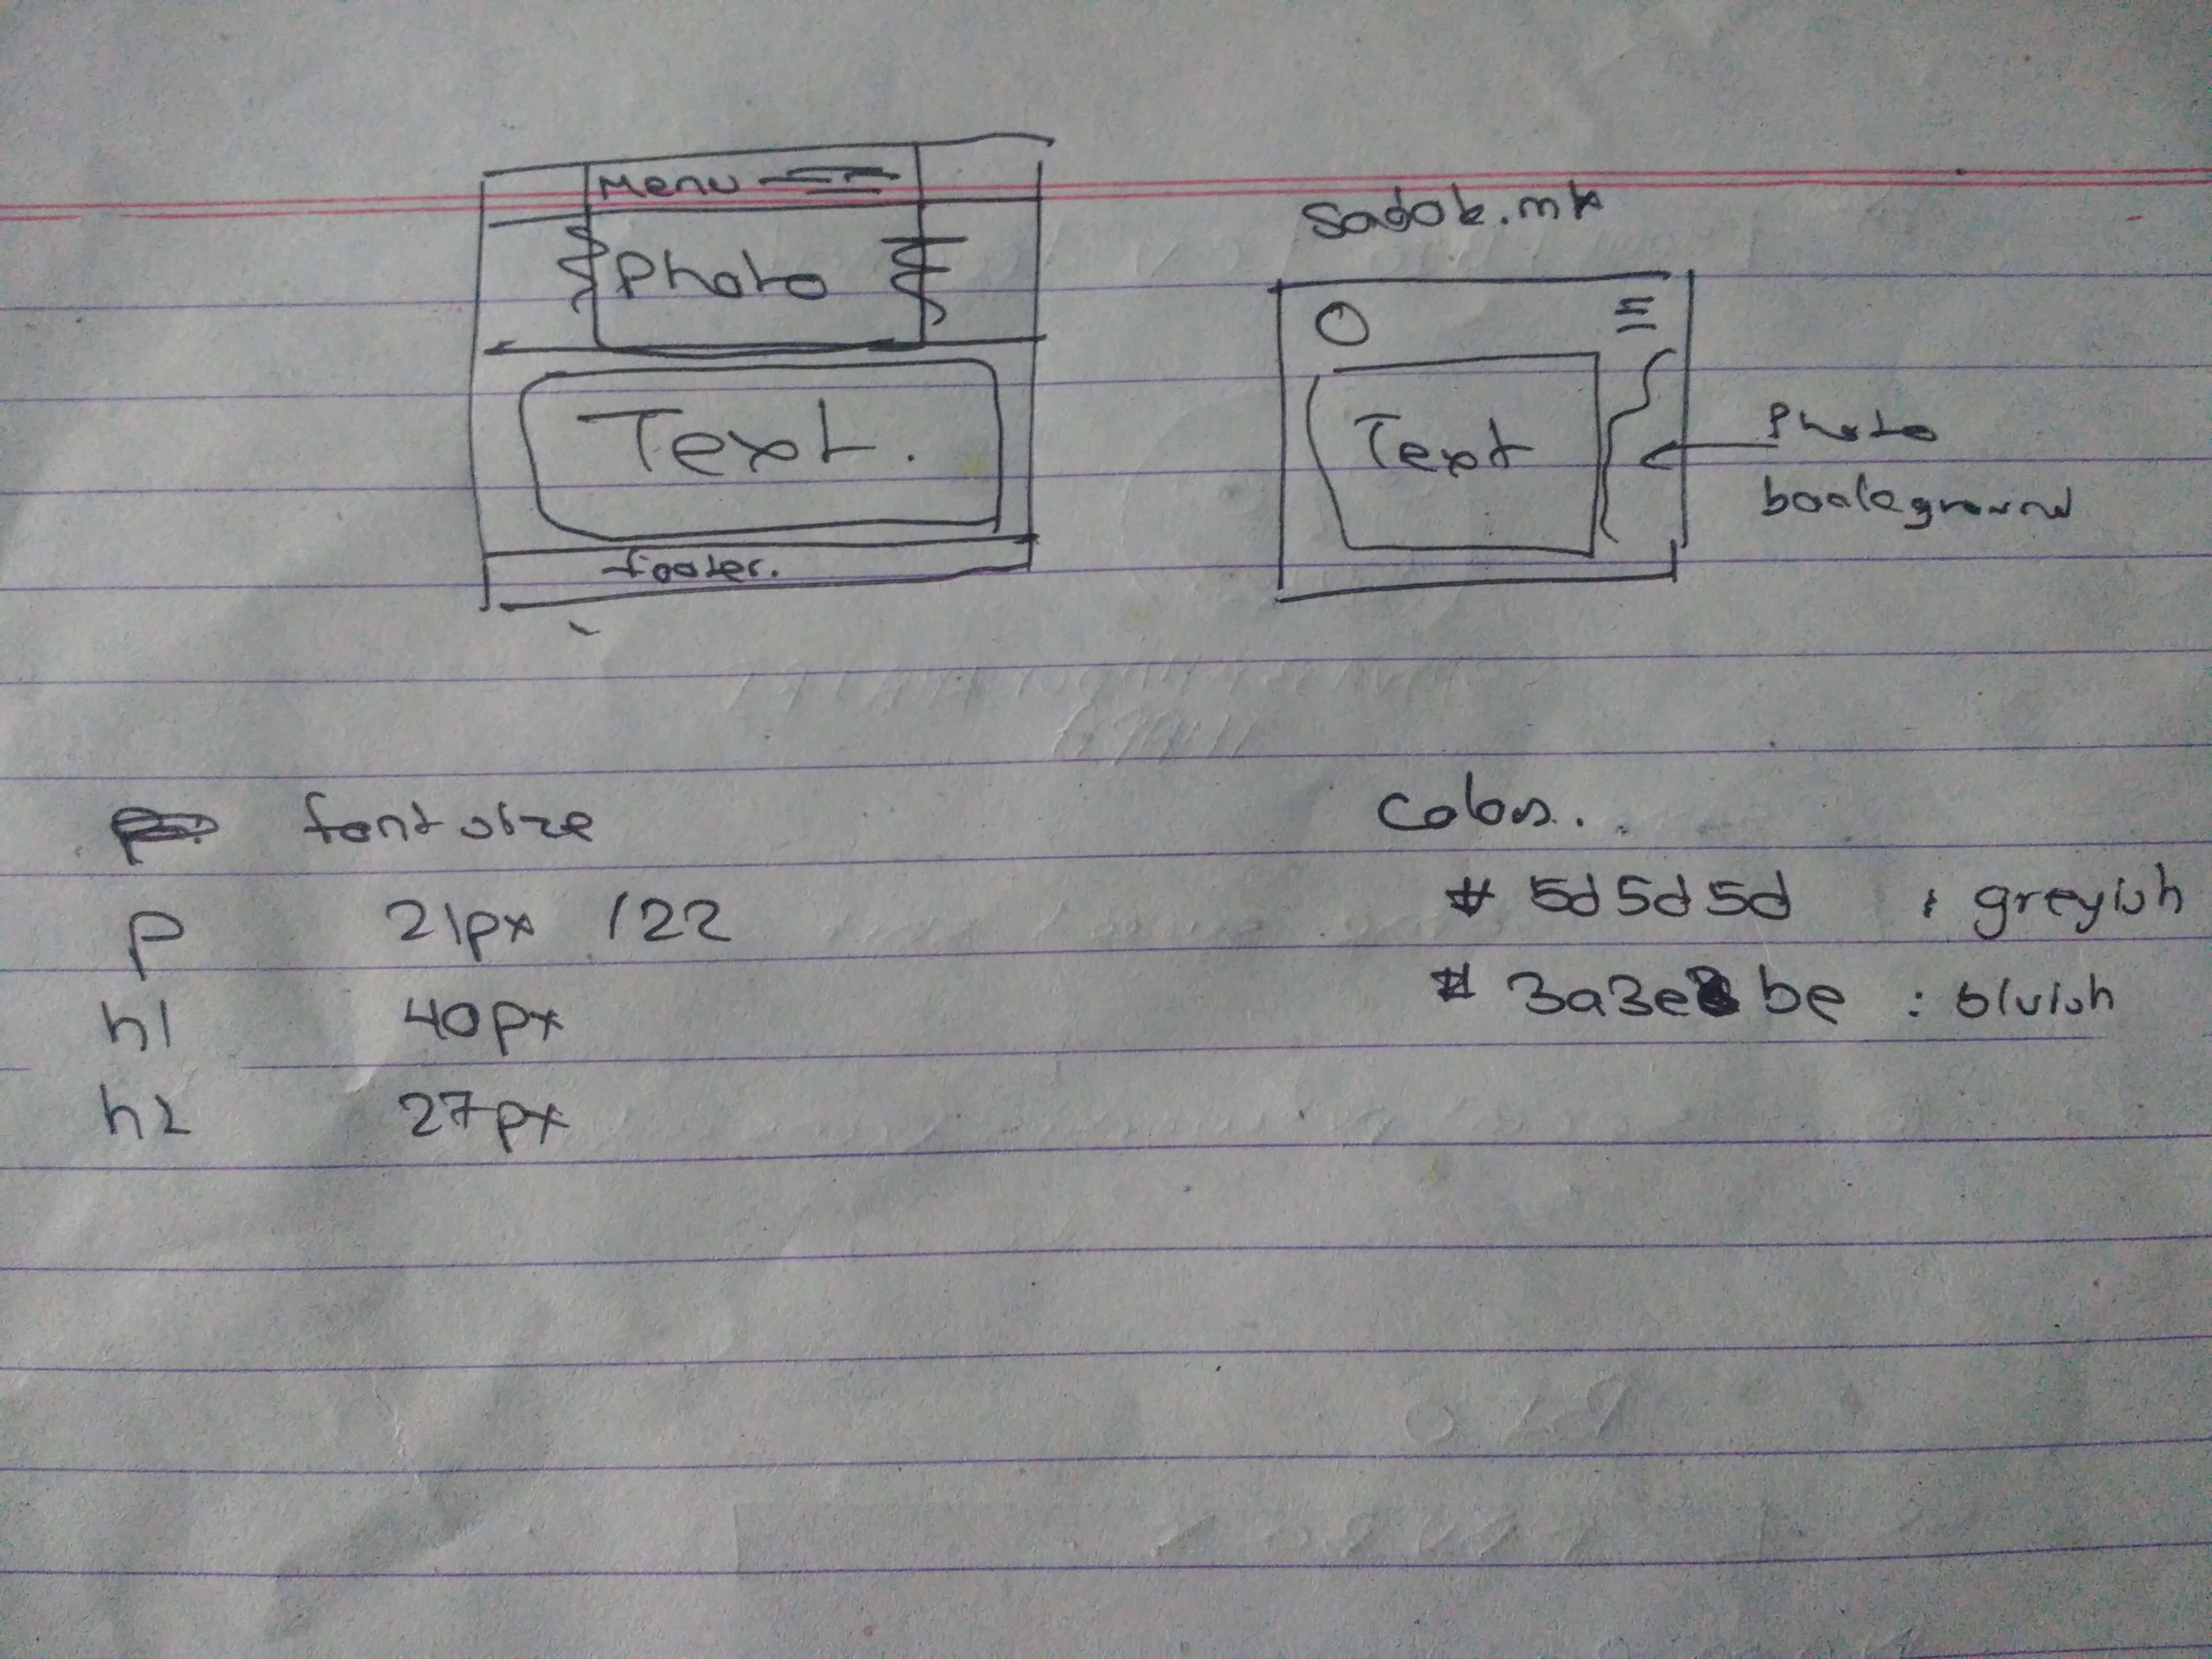 Menu
Photo
Text.
footer.
Text
Photo
font size
p 21px /22
h1 40px
h2 27px
Colors..
# 5d5d5d : greyish
# 3a3e be : bluish